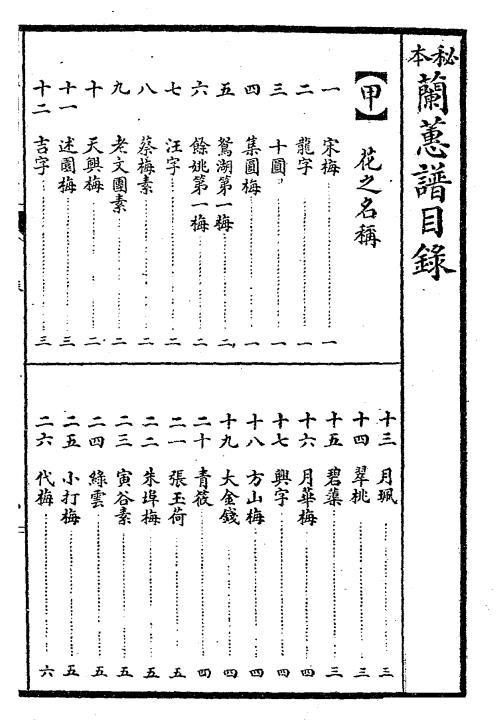 秘本蘭蕙譜目錄
【甲】花之名稱
一 宋梅……一
二 龍字……一
三 十圓……一
四 集圓梅……一
五 鴛湖第一梅……二
六 餘姚第一梅……二
七 汪字……二
八 蔡梅素……二
九 老文團素……二
十 天興梅……二
十一 述園梅……三
十二 吉字……三
十三 月珮……三
十四 翠桃……三
十五 碧蕖……三
十六 月華梅……四
十七 興字……四
十八 方山梅……四
十九 大金錢……四
二十 青筱……四
二一 張玉荷……五
二二 朱埠梅……五
二三 寅谷素……五
二四 綠雲……五
二五 小打梅……五
二六 代梅……六